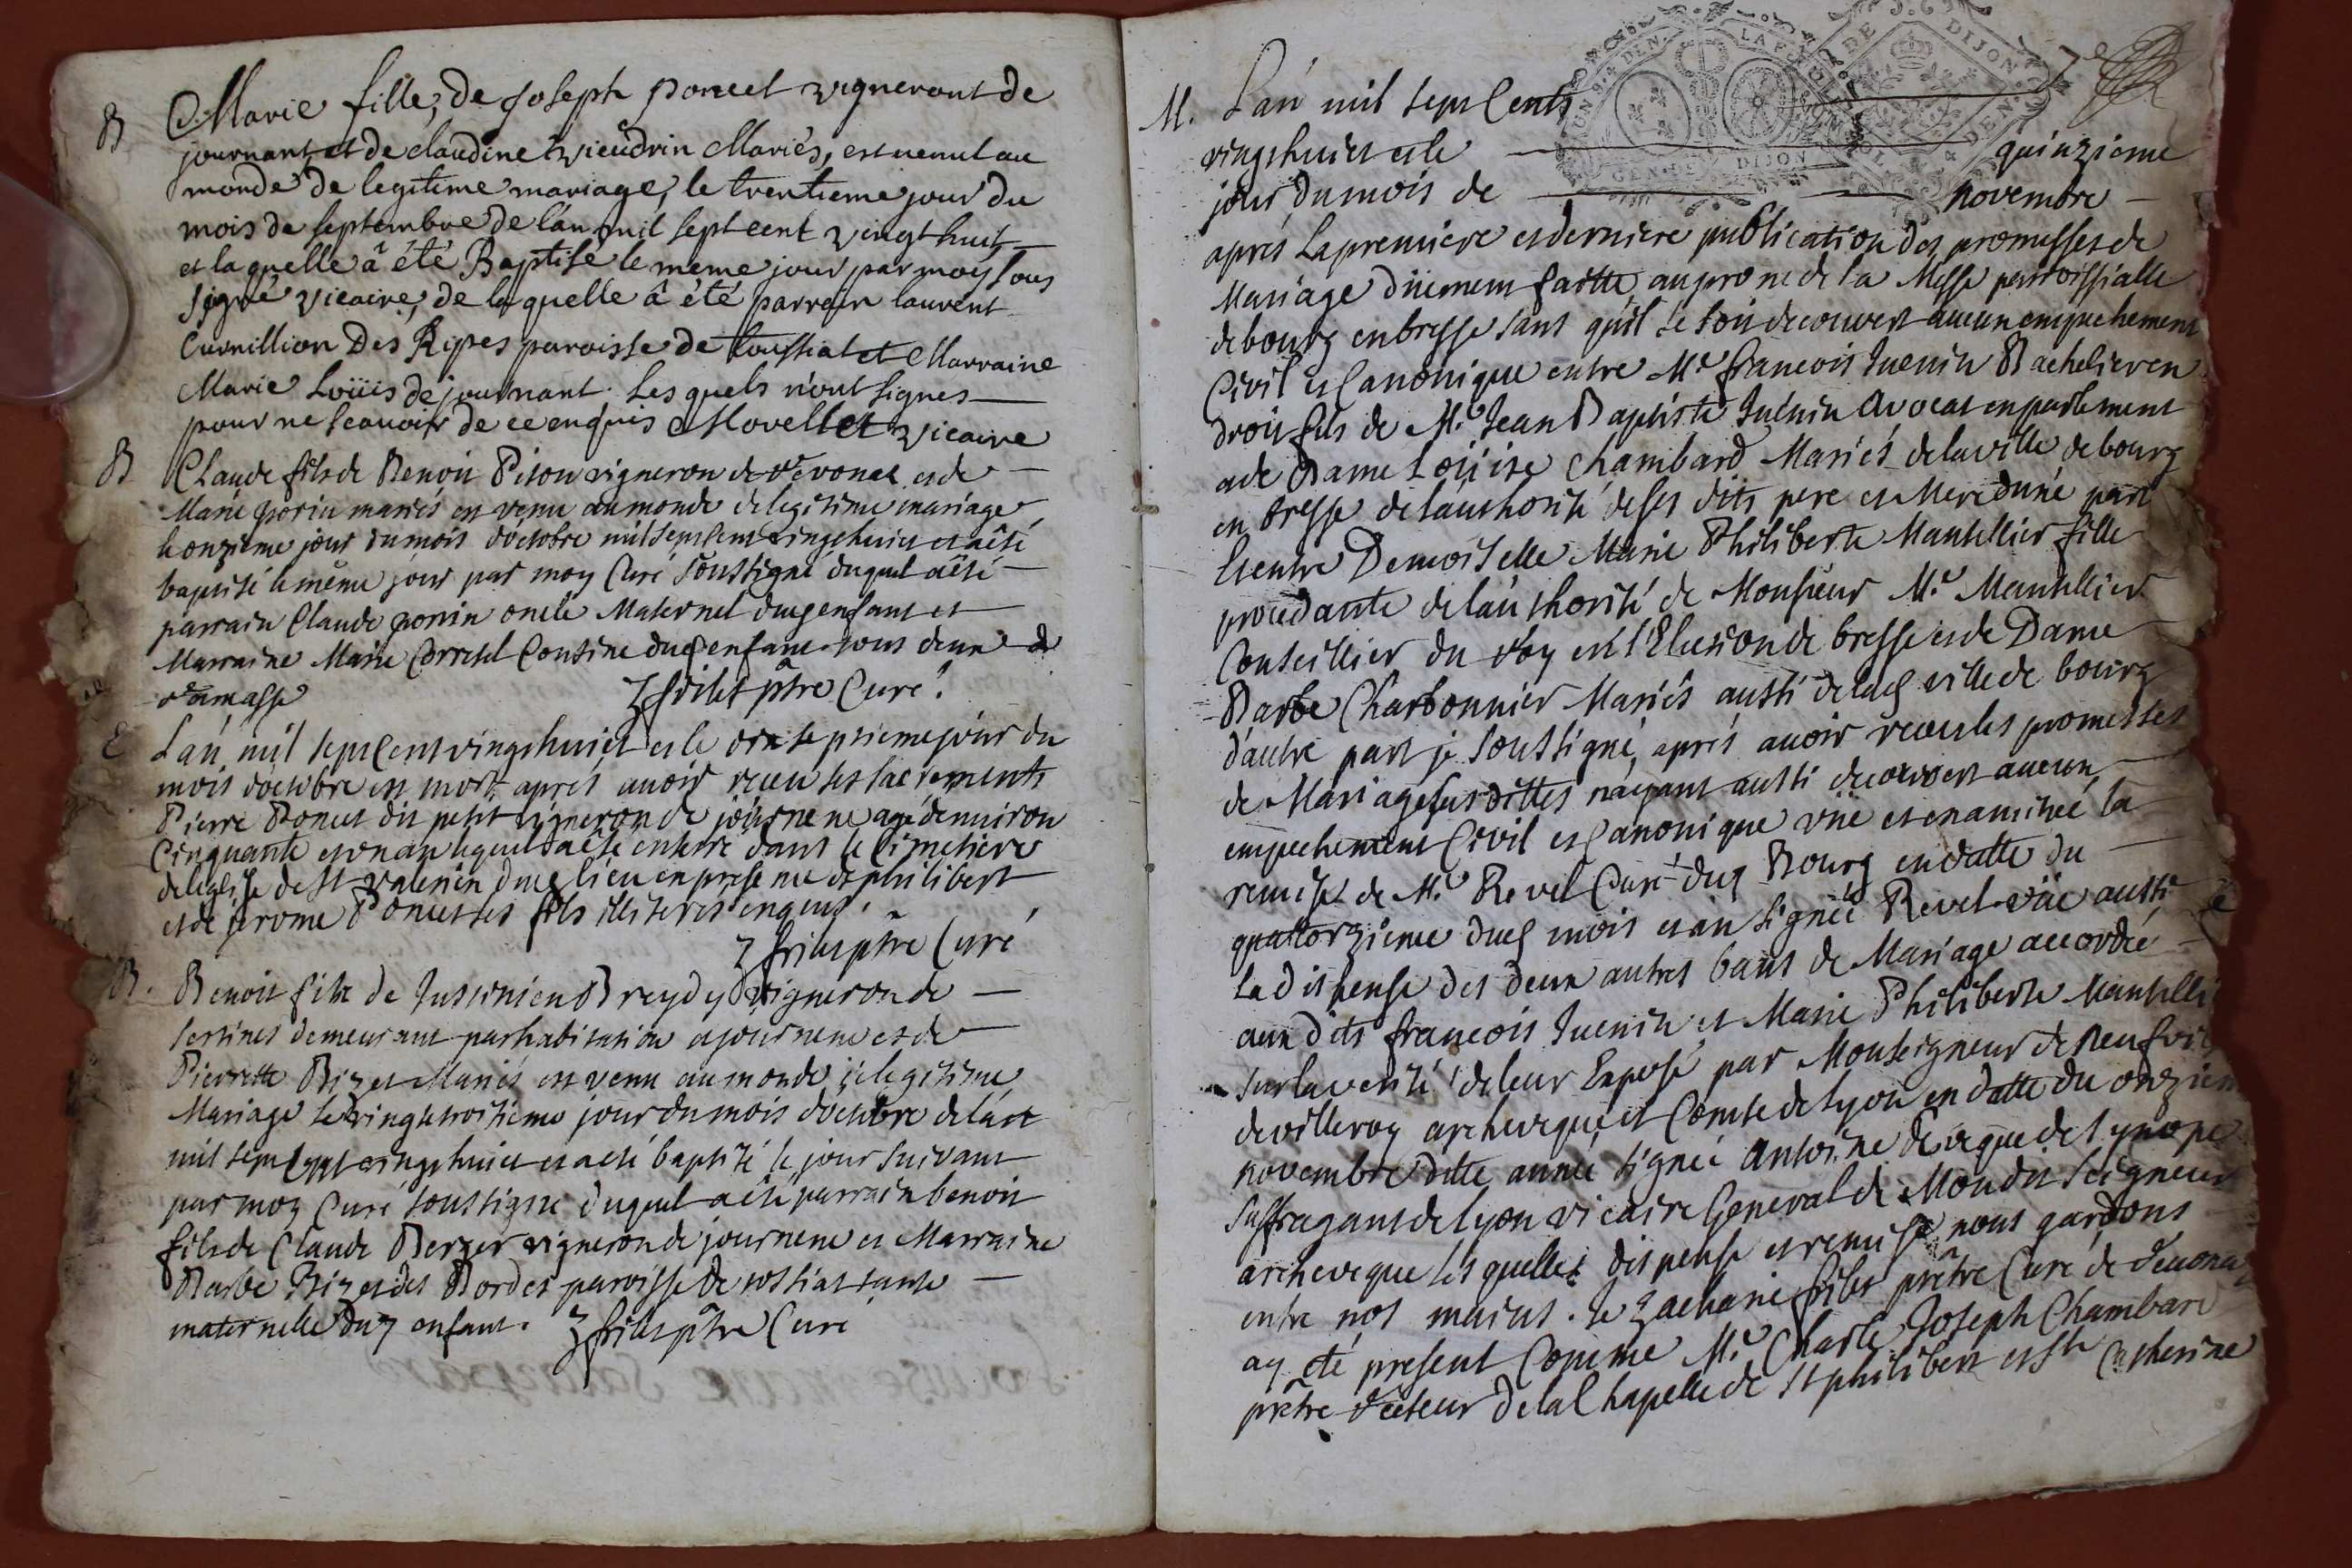 B
Marie fille, de Joseph poncet vigneront de
journant, et de claudine vieudrin Mariés, est venul au
monde de legitime mariage, le trentieme jour du
mois de septembre de l'an mil sept cent vingt huit
et la quelle â été Baptisé le meme jour par moy sous
signé vicaire, de la quelle â été parrain laurent
Curnillion Des Ripes paroisse de toussiat et Marraine
Marie Loüis de journant. Les quels n'ont signes
pour ne scauoir de ce enquis Morellet vicaire
B
Claude fils de Benoit Piton vigneron de revonas et de
Marie gorin mariés est venu au monde de legitime mariage
le onzieme jour du mois d'octobre mil sept cent vingt huict et a été
baptisé le même jour par moy Curé soussigné duquel a été
parrain Claude gorin oncle Maternel dud enfant et
Marraine Marie Corretel Cousine dud enfant tous deux de
ramasse
Z frilet ptre Curé
E
L'an mil sept cent vingt huict et le dix septieme jour du
mois d'octobre est mort apres auoir receu ses sacrements
Pierre Poncet dit petit vigneron de journene agé denuiron
Cinquante et un an lequel a été enterré dans le Cimetiere
de leglise de st valerien dud lieu en presence de philibert
et de jerome Poncet ses fils illiterés enquis.
Z frilet ptre Curé
B.
Benoit fils de Justinien Breydy vigneron de
sertines demeurant par habitation a journene et de
Pierrette Bizet Mariés est venu au monde de legitime
Mariage le vingt troisieme jour du mois d'octobre de l'an
mil sept cent vingt huict et a eté baptisé le jour suivant
par moy Curé soussigné duquel a été parrain benoit
fils de Claude Berger vigneron de journene et Marraine
Barbe Bizet des Bordes paroisse de tossiat tante
maternelle dud enfant. Z frilet ptre Curé
GEN. DE DIJON
UN S. 4 DEN.
LA F.
DE DIJON
4 DEN.
M.
L'an mil sept Cents
vingt huict et le quinzieme
jour du mois de novembre
aprés La premiere et derniere publication des promesses de
Mariage düement faitte au prone de la Messe parroissialle
de bourg en bresse sans qu'il se soit decouvert aucun empechement
Civil et Canonique entre Mr francois Juenin Bachelier en
droit fils de Mr. Jean Baptiste Juenin Avocat en parlement
et de Dame Loüise Chambard Mariés de la ville de bourg
en bresse de l'authorité de ses dits pere et Mere d'une part
Et entre Demoiselle Marie Philiberte Mantellier fille
procedante de l'authorité de Monsieur Mr. Mantellier
Conseillier du Roy en l'Election de bresse et de Dame
Barbe Charbonnier Mariés aussi de lad ville de bourg
d'autre part je soussigné, aprés auoir receu les promesses
de Mariage sus dittes n'ayant aussi decouvert aucun
empechement Civil et Canonique vüe et examinée la
remise de Mr. Revel Curé dud Bourg en datte du
quattorzieme dud mois et an signéé Revel vüe aussi
La dispense des deux autres bans de Mariage accordée
aux dits francois Juenin et Marie Philiberte Mantelli
sur la verité de leur Exposé par Monseigneur de Neufvi
de villeroy archeveque et Comte de lyon en datte du onzie
novembre ditte année signéé Antoine Eveque de synope
suffragant de lyon vicaire General de Mondit seigneur
archeveque les quelles dispense et remise nous gardons
entre nos mains. Je Zacharie frilet prêtre Curé de revona
ay été present Comme Mr. Charle Joseph Chambard
prêtre recteur de la Chapelle de st philibert et ste Catherine